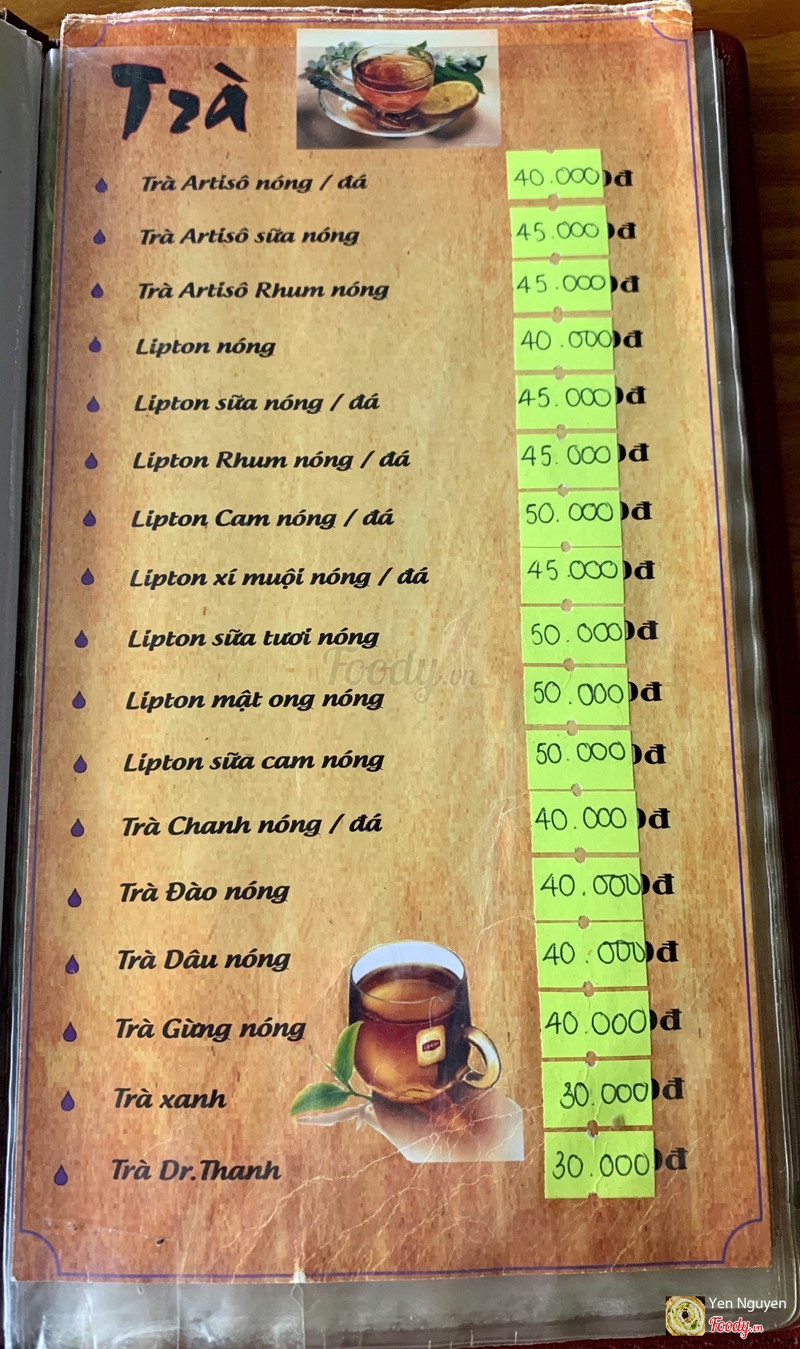 Trà
Trà Artisô nóng / đá 40.000đ
Trà Artisô sữa nóng 45.000đ
Trà Artisô Rhum nóng 45.000đ
Lipton nóng 40.000đ
Lipton sữa nóng / đá 45.000đ
Lipton Rhum nóng / đá 45.000đ
Lipton Cam nóng / đá 50.000đ
Lipton xí muội nóng / đá 45.000đ
Lipton sữa tươi nóng 50.000đ
Foody.vn
Lipton mật ong nóng 50.000đ
Lipton sữa cam nóng 50.000đ
Trà Chanh nóng / đá 40.000đ
Trà Đào nóng 40.000đ
Trà Dâu nóng 40.000đ
Trà Gừng nóng 40.000đ
Trà xanh 30.000đ
Trà Dr.Thanh 30.000đ
Yen Nguyen
Foody.vn